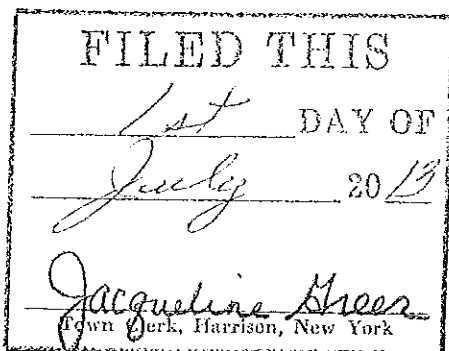 FILED THIS
1st DAY OF
July 2013
Jacqueline Greer
Town Clerk, Harrison, New York